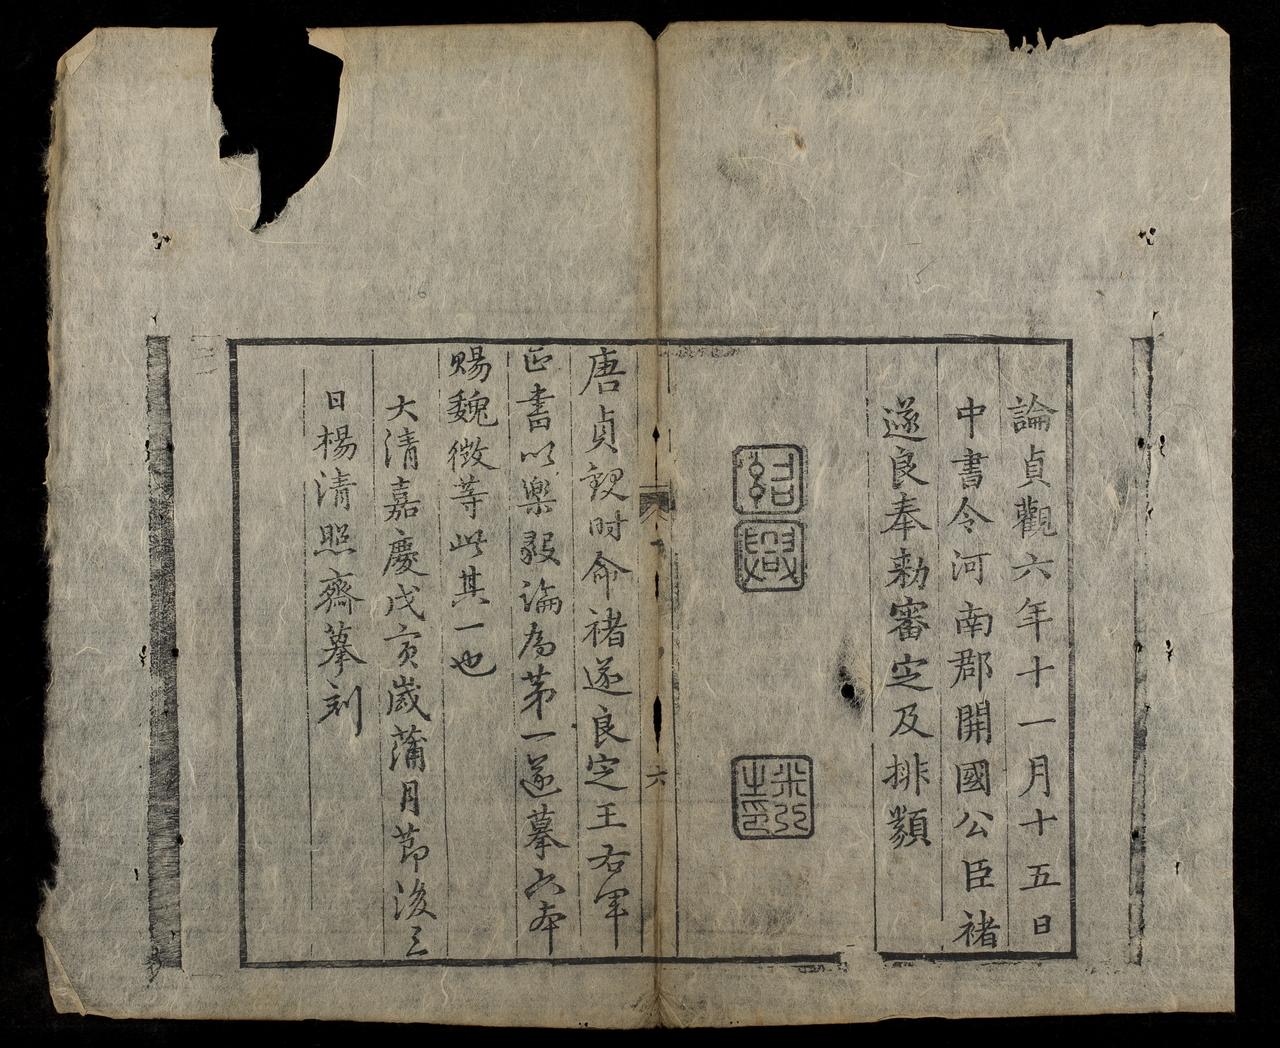 論貞觀六年十一月十五日
中書令河南郡開國公臣褚
遂良奉勅審定及排類
紹
興
米芾
之印
六
唐貞觀时命褚遂良定王右軍
正書以樂毅論為第一遂摹六本
賜魏徵等此其一也
大清嘉慶戊寅歲蒲月節後三
日楊清照齋摹刻